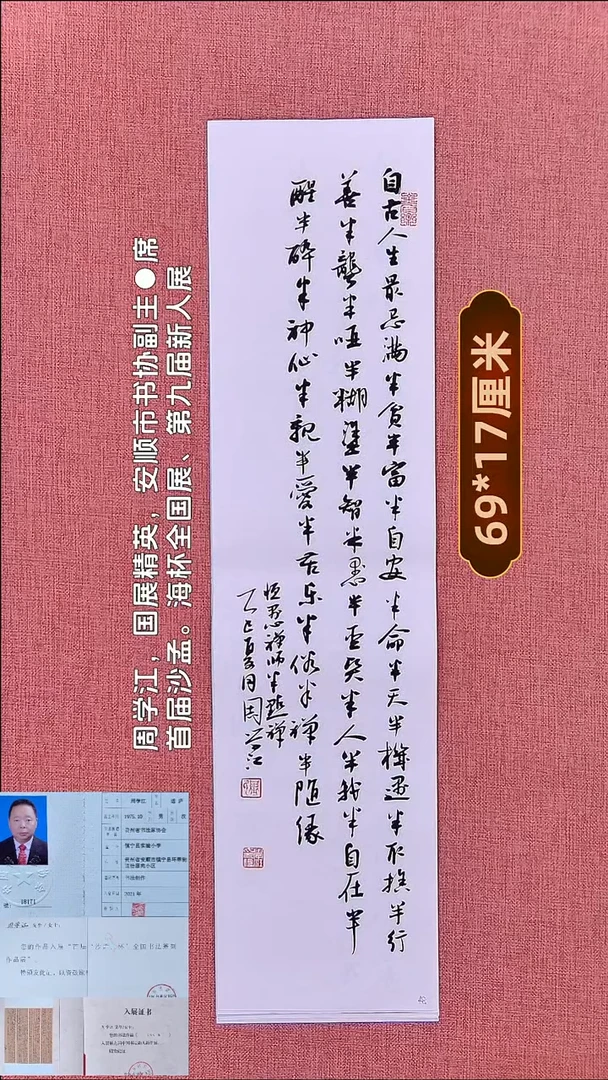 自古人生最忌满半贫半富半自安半命半天半機遇半取捨半行
善半聾半哑半糊塗半智半愚半圣賢半人半我半自在半
醒半醉半神仙半親半愛半苦乐半俗半禅半随缘
禅师半點禅
乙巳夏月周学江
周学江，国展精英，安顺市书协副主●席
首届沙孟。海杯全国展、第九届新人展
69*17厘米
周学江
男
18171
入展证书